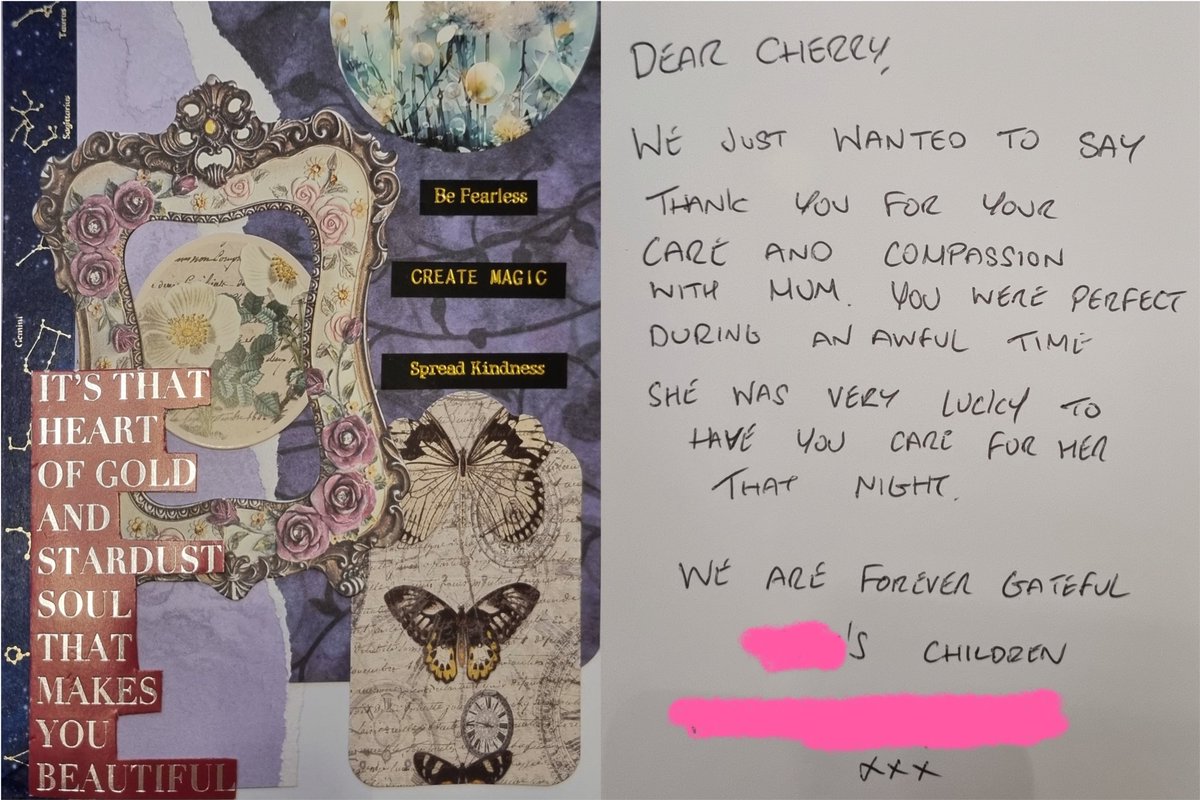 Taurus
Sagittarius
Gemini
Be Fearless
CREATE MAGIC
Spread Kindness
IT'S THAT
HEART
OF GOLD
AND
STARDUST
SOUL
THAT
MAKES
YOU
BEAUTIFUL
DEAR CHERRY,
WE JUST WANTED TO SAY
THANK YOU FOR YOUR
CARE AND COMPASSION
WITH MUM. YOU WERE PERFECT
DURING AN AWFUL TIME
SHE WAS VERY LUCKY TO
HAVE YOU CARE FOR HER
THAT NIGHT.
WE ARE FOREVER GATEFUL
'S CHILDREN
xxx